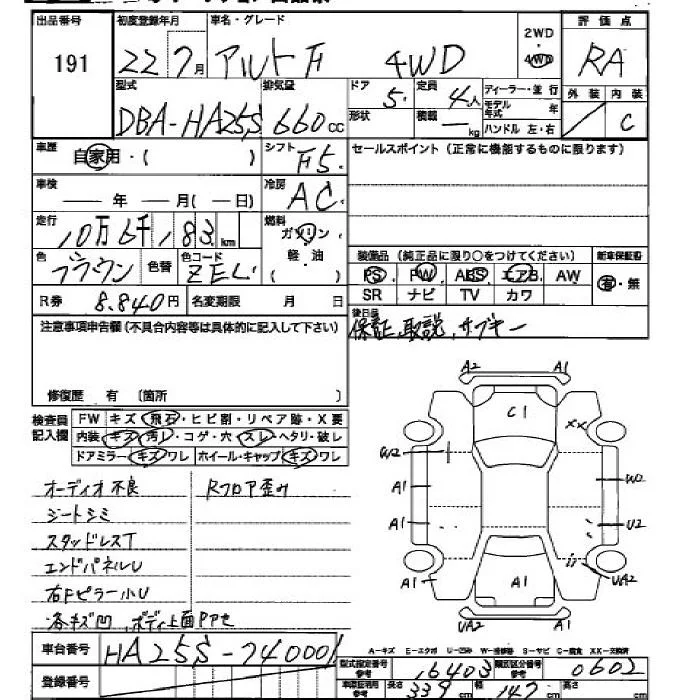 出品番号 初度登録年月 車名・グレード 2WD・4WD 評価点
191 22 7月 アルトF 4WD RA
型式 排気量 ドア 定員 ディーラー・並行 外装 内装
DBA-HA25S 660cc 5. 4人 モデル年式 年 C
形状 積載 — kg ハンドル 左・右
車歴 自家用・( ) シフト F5. セールスポイント(正常に機能するものに限ります)
車検 — 年 — 月(— 日) 冷房 AC.
走行 10万6千183km 燃料 ガソリン・軽油
色 ブラウン 色替 色コード ZEL
装備品(純正品に限り○をつけてください) 新車保証書
PS PW ABS エアB AW 有・無
SR ナビ TV カワ
R券 8.840円 名変期限 月 日
後日品
保証、取説、サブキー
注意事項申告欄(不具合内容等は具体的に記入して下さい)
修復歴 有 〔箇所 〕
検査員記入欄 FW キズ・飛石・ヒビ割・リペア跡・X要
内装・キズ・汚レ・コゲ・穴・スレ・ヘタリ・破レ
ドアミラー・キズ・ワレ ホイール・キャップ・キズ・ワレ
オーディオ不良 Rフロア歪み
シートシミ
スタッドレスT
エンドパネルU
右Fピラー小U
各キズ凹、ボディ上面PPセ
A2 A1
C1 XX
W2
A1 W2
A1 U2
A1 A1 UA2
UA2 A1
A-キズ E-エクボ U-凹み W-補修跡 S-サビ C-腐食 XX-交換済
車台番号 HA25S-740001
型式指定番号 参考 16403 類別区分番号 参考 0602
登録番号
車庫証明用 参考 長さ 339cm 幅 147cm